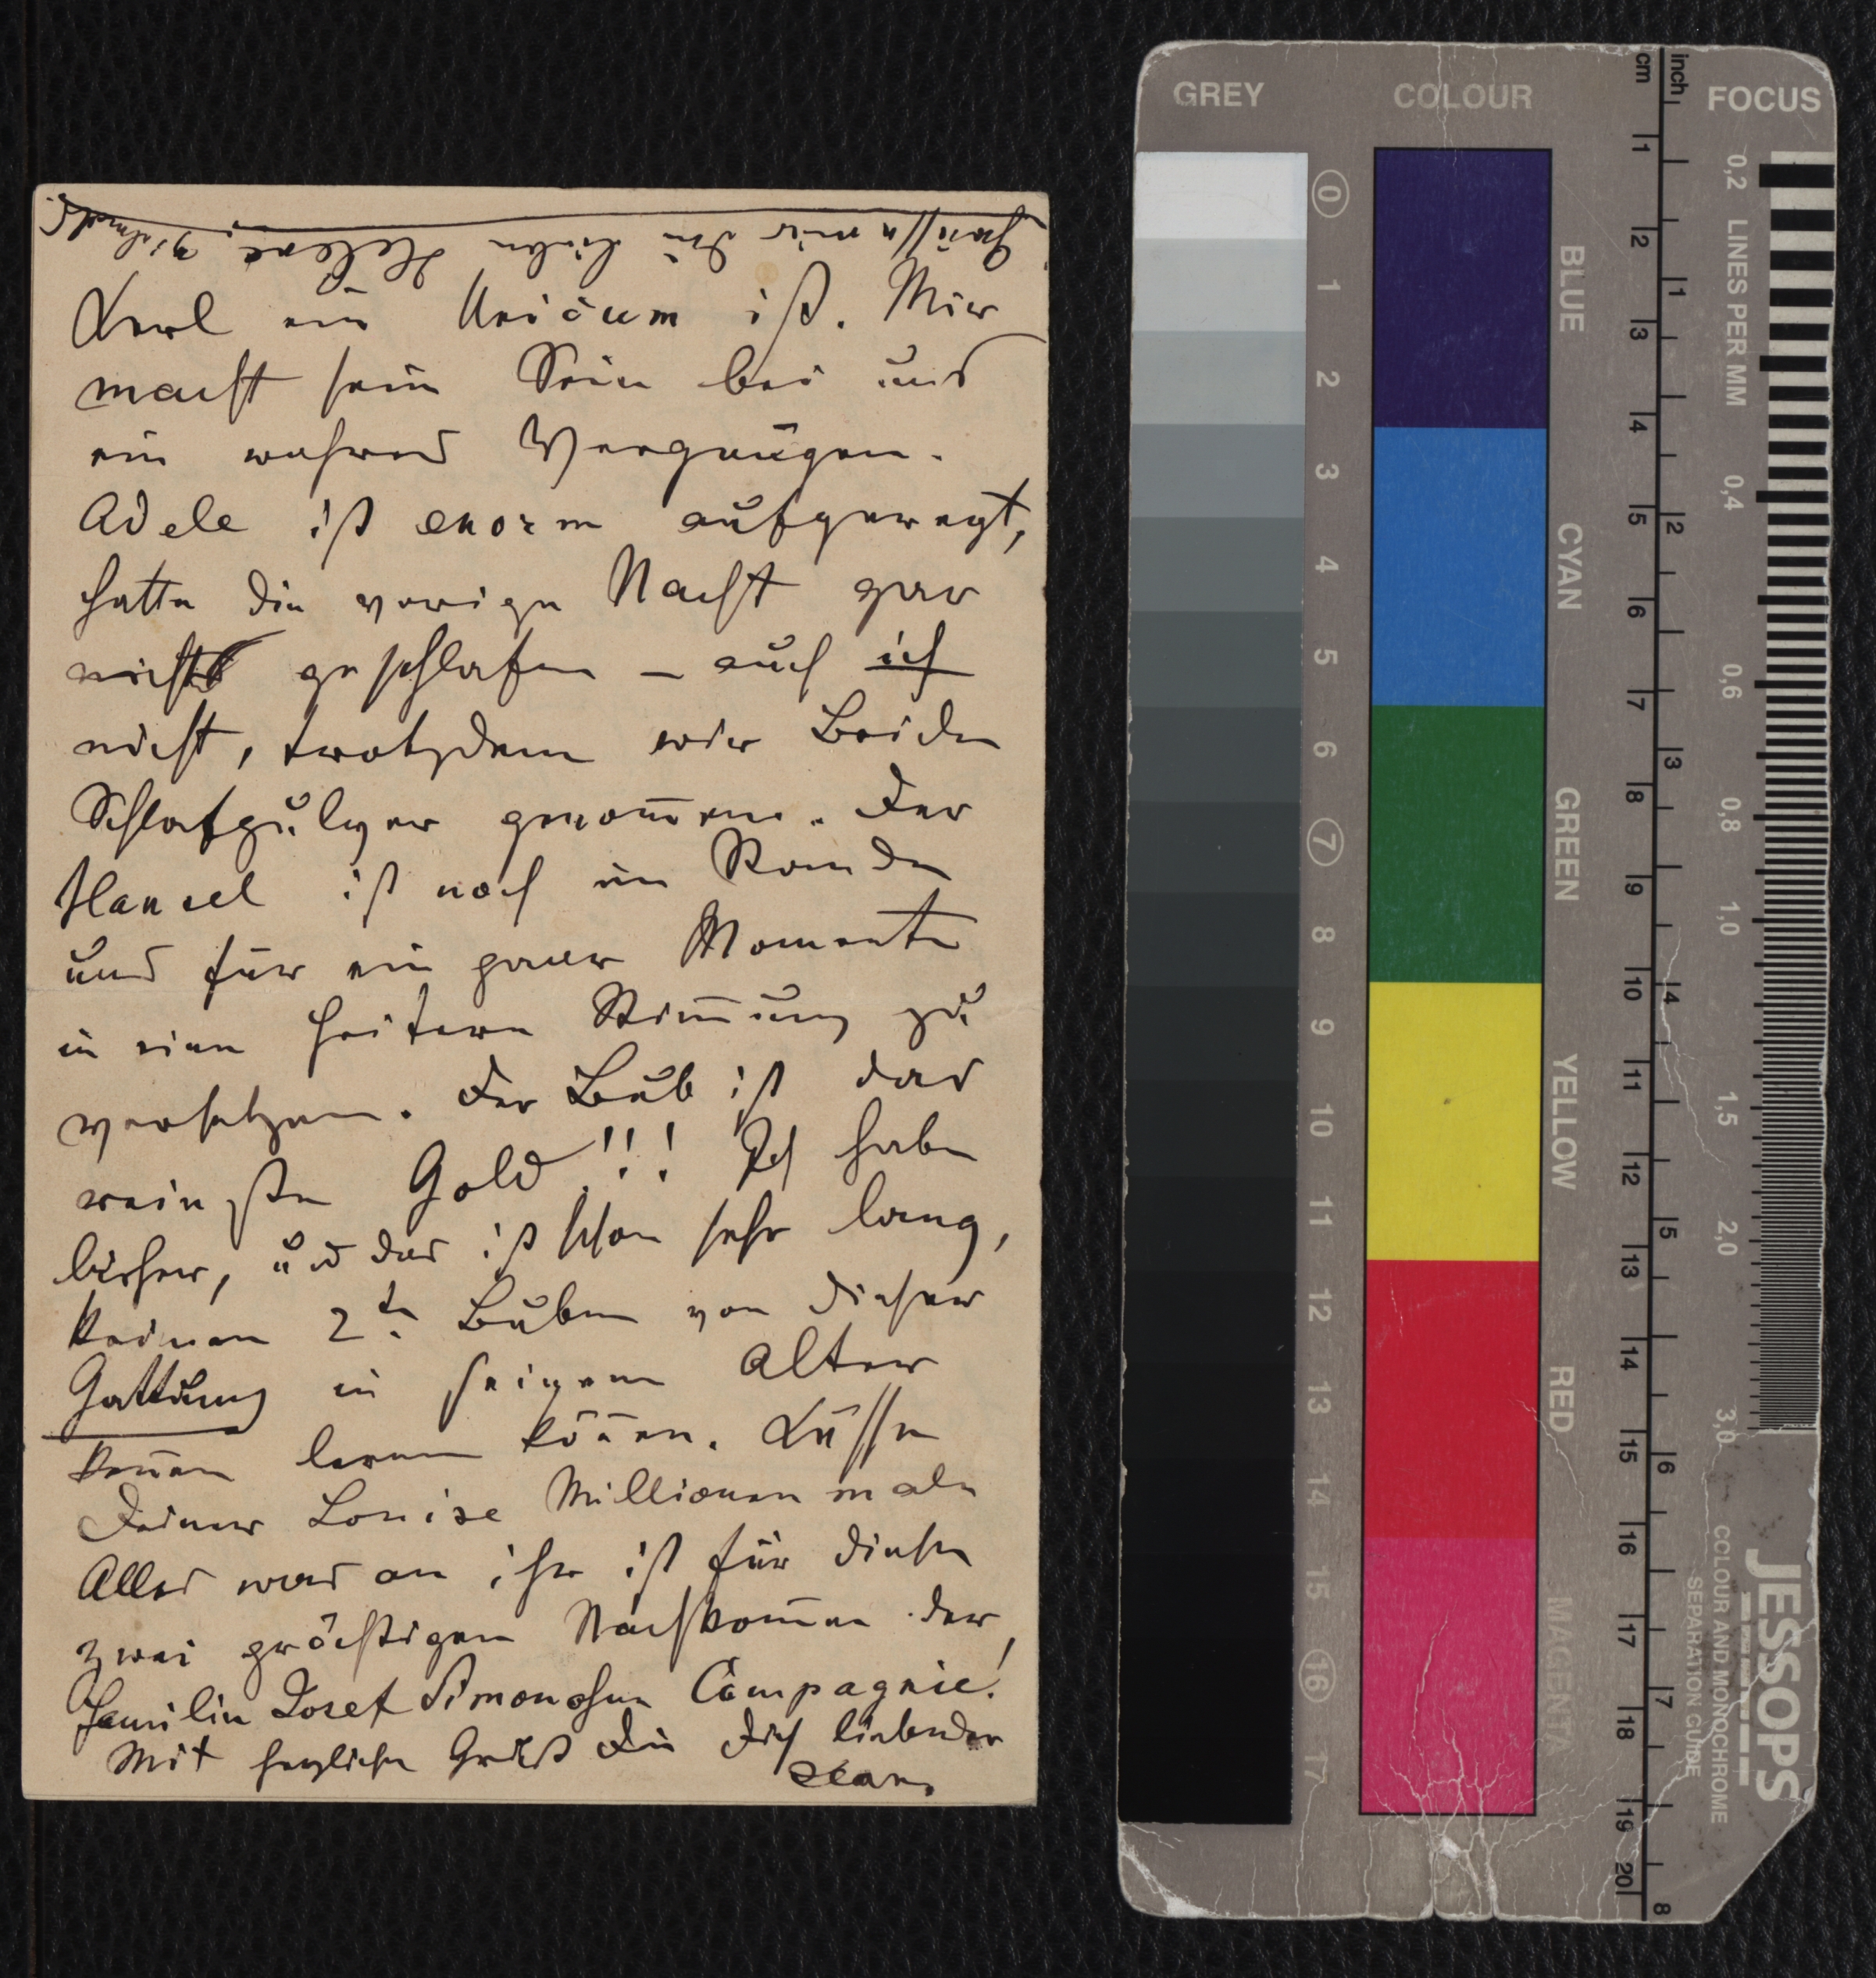 Grüsse mir die lieben Helene, Zidmed.
Kerl ein Unicum ist. Mir
macht sein Sein bei uns
ein wahres Vergnügen.
Adele ist enorm aufgeregt,
hatte die vorige Nacht gar
nicht geschlafen – auch ich
nicht, trotzdem wir Beide
Schlafpulver genom̄en. Der
Hansel ist noch im Stande
uns für ein paar Momente
in eine heitere Stim̄ung zu
versetzen. Der Bub ist das
reinste Gold!!! Ich habe
bisher, und das ist schon sehr lang,
keinen 2ten Buben von dieser
Gattung in seigem Alter
keñen lernen köñen. Küsse
Deiner Louise Millionen male
Alles was an ihr ist für diesen
zwei prächtigen Nachkom̄en der
Familie Josef Simon & Compagnie!
Mit herzlichen Gruß Die Dich liebender
Jean.
GREY
COLOUR
FOCUS
cm
inch
0 1 2 3 4 5 6 7 8 9 10 11 12 13 14 15 16 17
BLUE
CYAN
GREEN
YELLOW
RED
MAGENTA
1 2 3 4 5 6 7 8 9 10 11 12 13 14 15 16 17 18 19 20
1 2 3 4 5 6 7 8
LINES PER MM
0,2
0,4
0,6
0,8
1,0
1,5
2,0
3,0
JESSOPS
COLOUR AND MONOCHROME
SEPARATION GUIDE